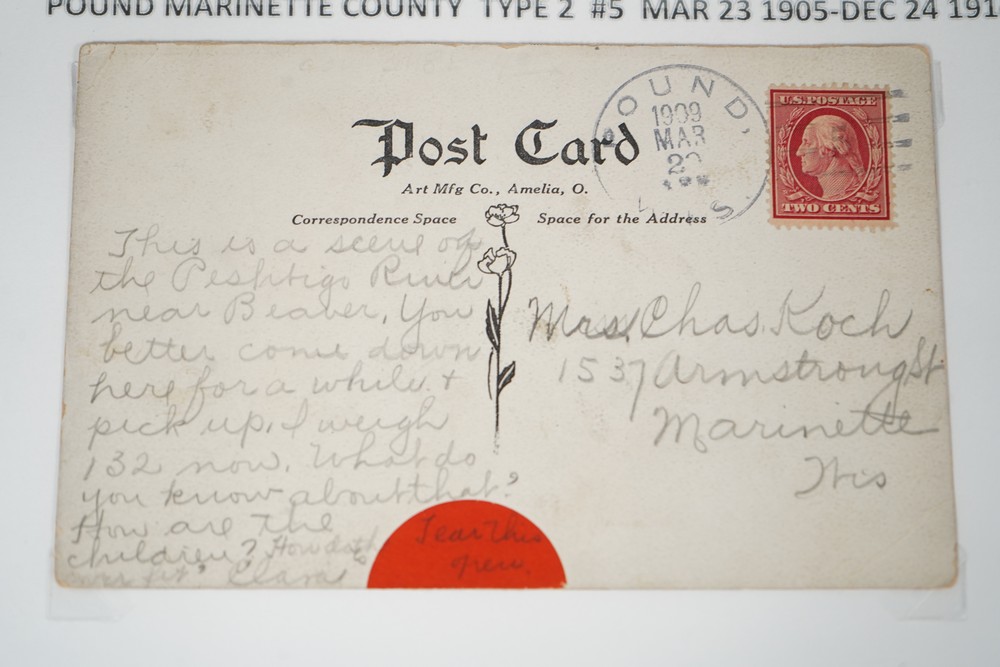 POUND MARINETTE COUNTY TYPE 2 #5 MAR 23 1905-DEC 24 191
Post Card
Art Mfg Co., Amelia, O.
Correspondence Space
Space for the Address
POUND,
1909
MAR
WIS
U.S. POSTAGE
TWO CENTS
This is a scene of
the Peshtigo River
near Beaver, You
better come down
here for a while &
pick up, I weigh
132 now. What do
you know about that?
How are the
children? How
fit? Clara
Tear this
open.
Mrs. Chas. Koch
1537 Armstrong St
Marinette
Wis